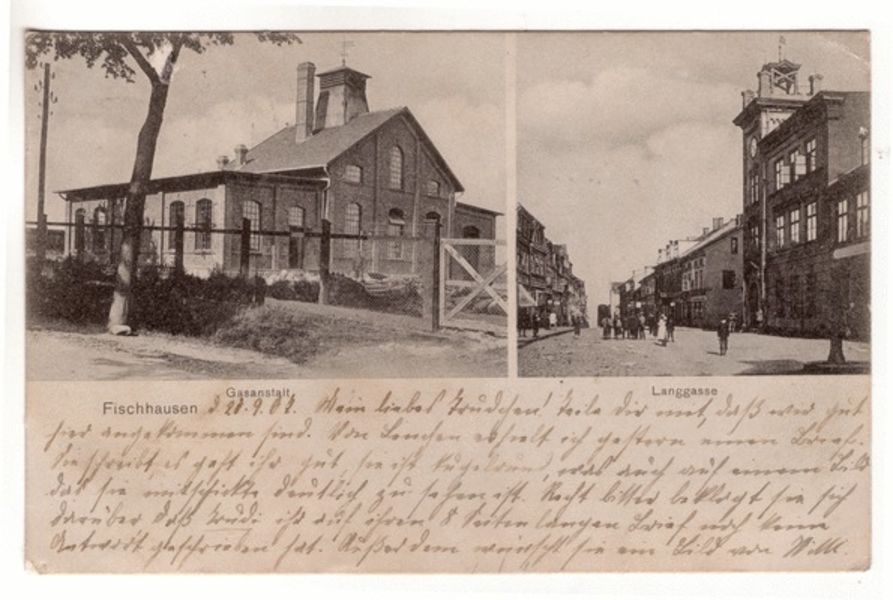 Gasanstalt
Langgasse
Fischhausen d 28.9.02. Mein liebes Trudchen! Teile Dir mit, daß wir gut
hier angekommen sind. Von Lenchen erhielt ich gestern einen Brief.
Sie schreibt, es geht ihr gut, sie ist kugelrund, was auch auf einem Bild
das sie mitschickte deutlich zu sehen ist. Recht bitter beklagt sie sich
darüber daß Trudi ihr auf ihren 8 Seiten langen Brief noch keine
Antwort geschrieben hat. Außerdem wünscht sie ein Bild von Willi.